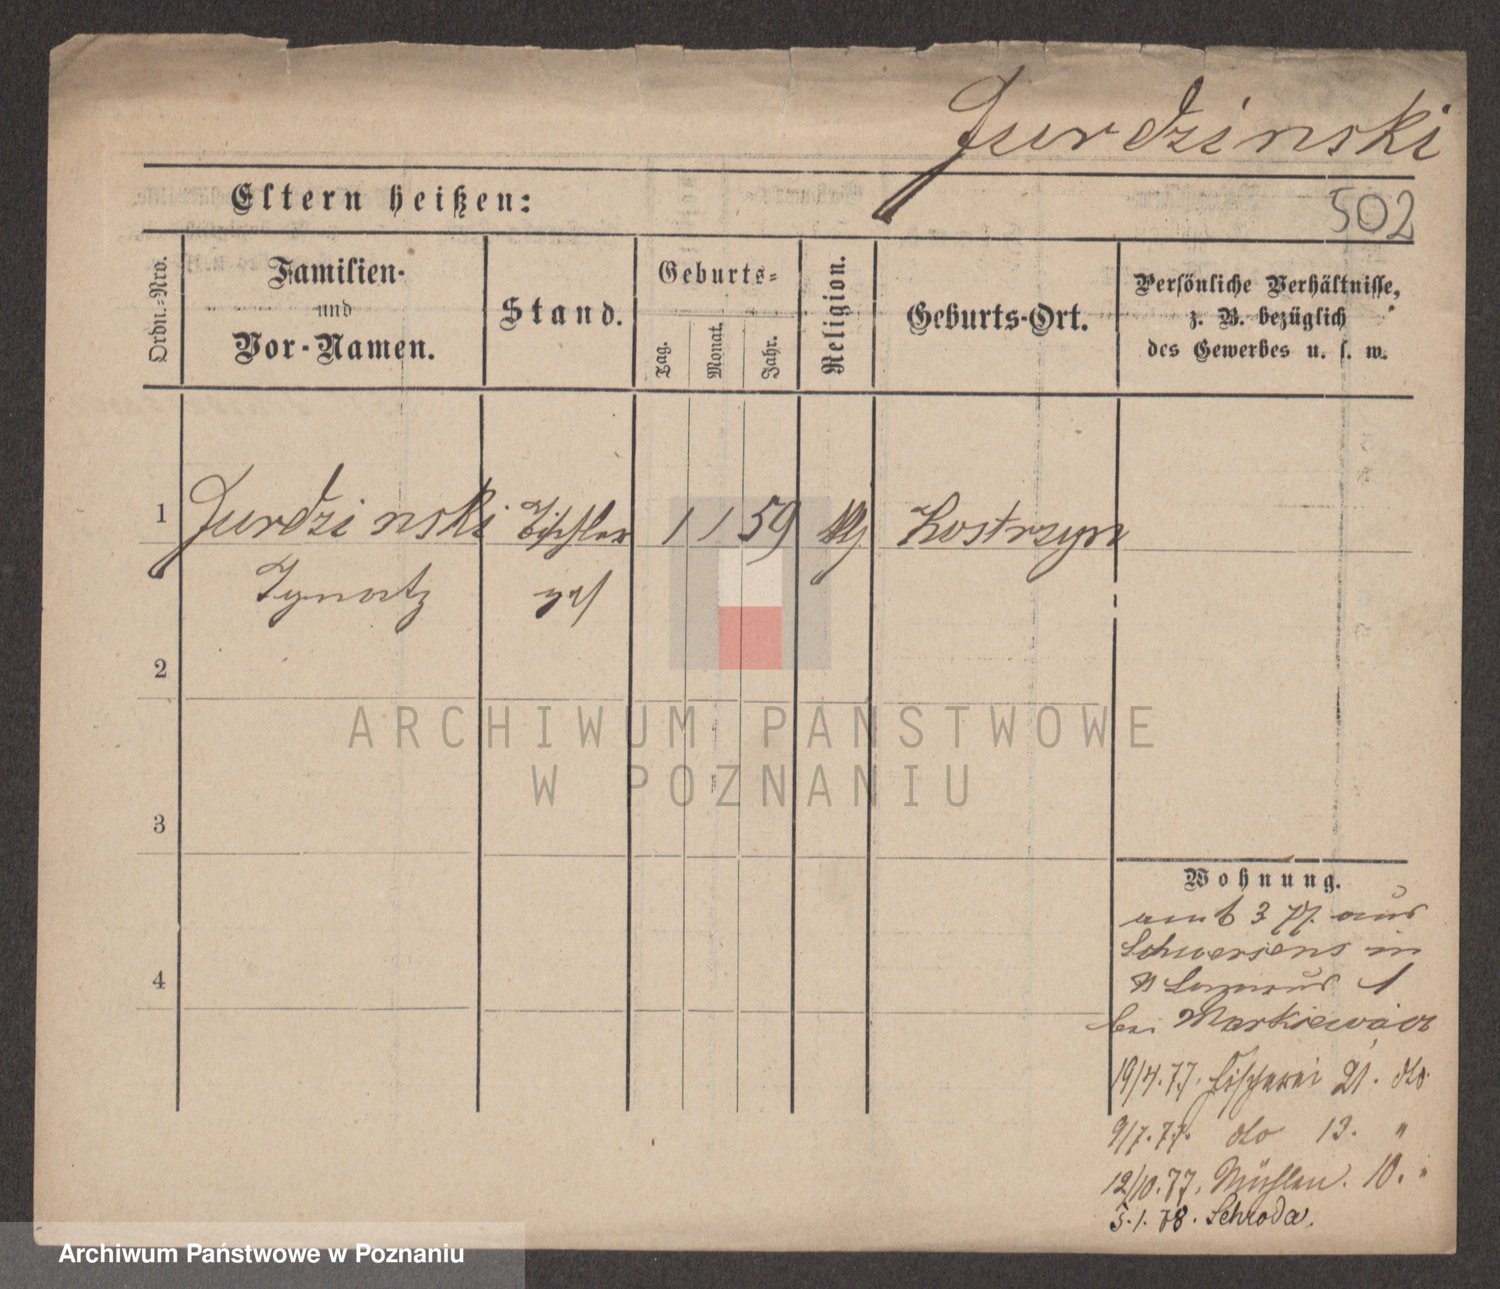 Jurdzinski
502
Eltern heißen:
Ordn.-Nro.
Familien-
und
Vor-Namen.
Stand.
Geburts-
Tag.
Monat.
Jahr.
Religion.
Geburts-Ort.
Persönliche Verhältnisse,
z. B. bezüglich
des Gewerbes u. s. w.
1 Jurdzinski Tischler 1 1 59 Kostrzyn
Ignatz
2
3
4
Wohnung.
3 77. aus
Schwersens in
bei Markiewicz
19/4.77. Fischerei 21. do
9/7.77. do 13. "
12/10.77. Mühlen. 10. "
5.1.78. Schroda.
ARCHIWUM PAŃSTWOWE
W POZNANIU
Archiwum Państwowe w Poznaniu